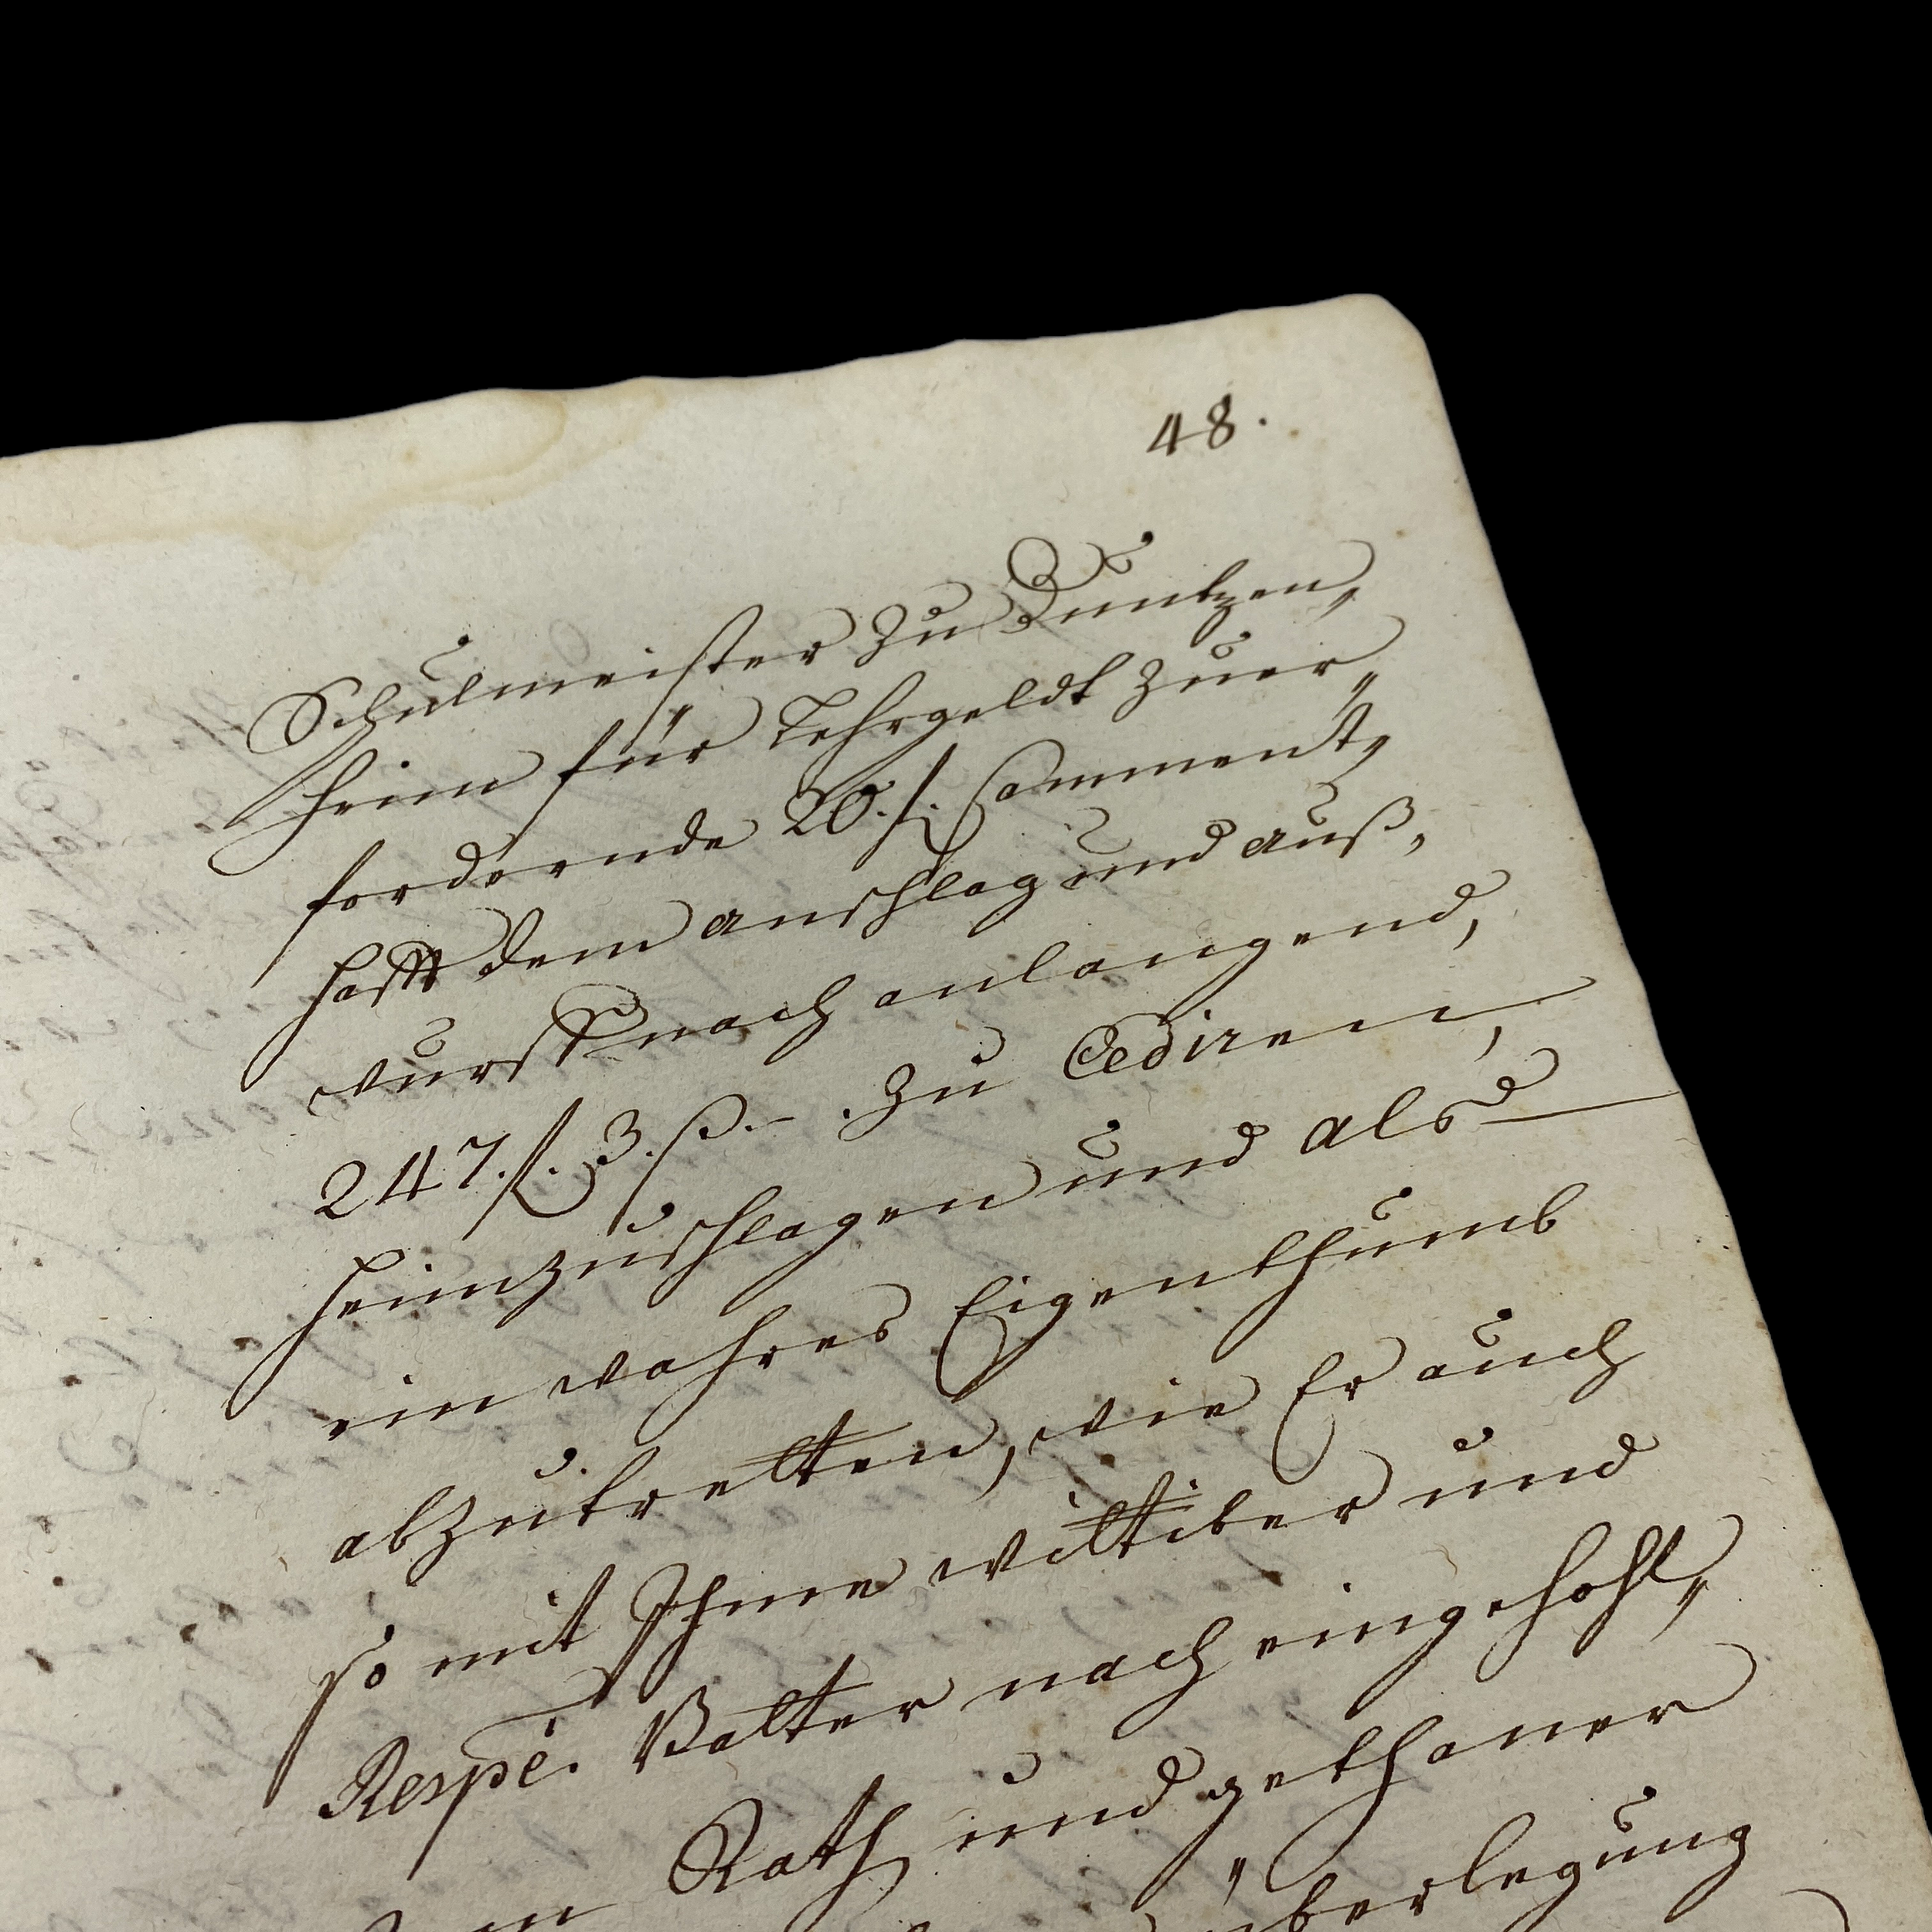 48.
Schulmeister zu Duntzen,,
heim für Lehrgeldt zuer,,
fordernde 20. f. Comment,,
hafft dem anschlag und auß,,
wurff nach anlangend,
247. f. 3. ß. – . zu Cediren,
heimzuschlagen und alß
ein wahres Eigenthumb
abzutretten, wie Er auch
so mit Ihme wittiber und
Respè. Vatter nach eingehohl,,
Rath und gethaner
überlegung